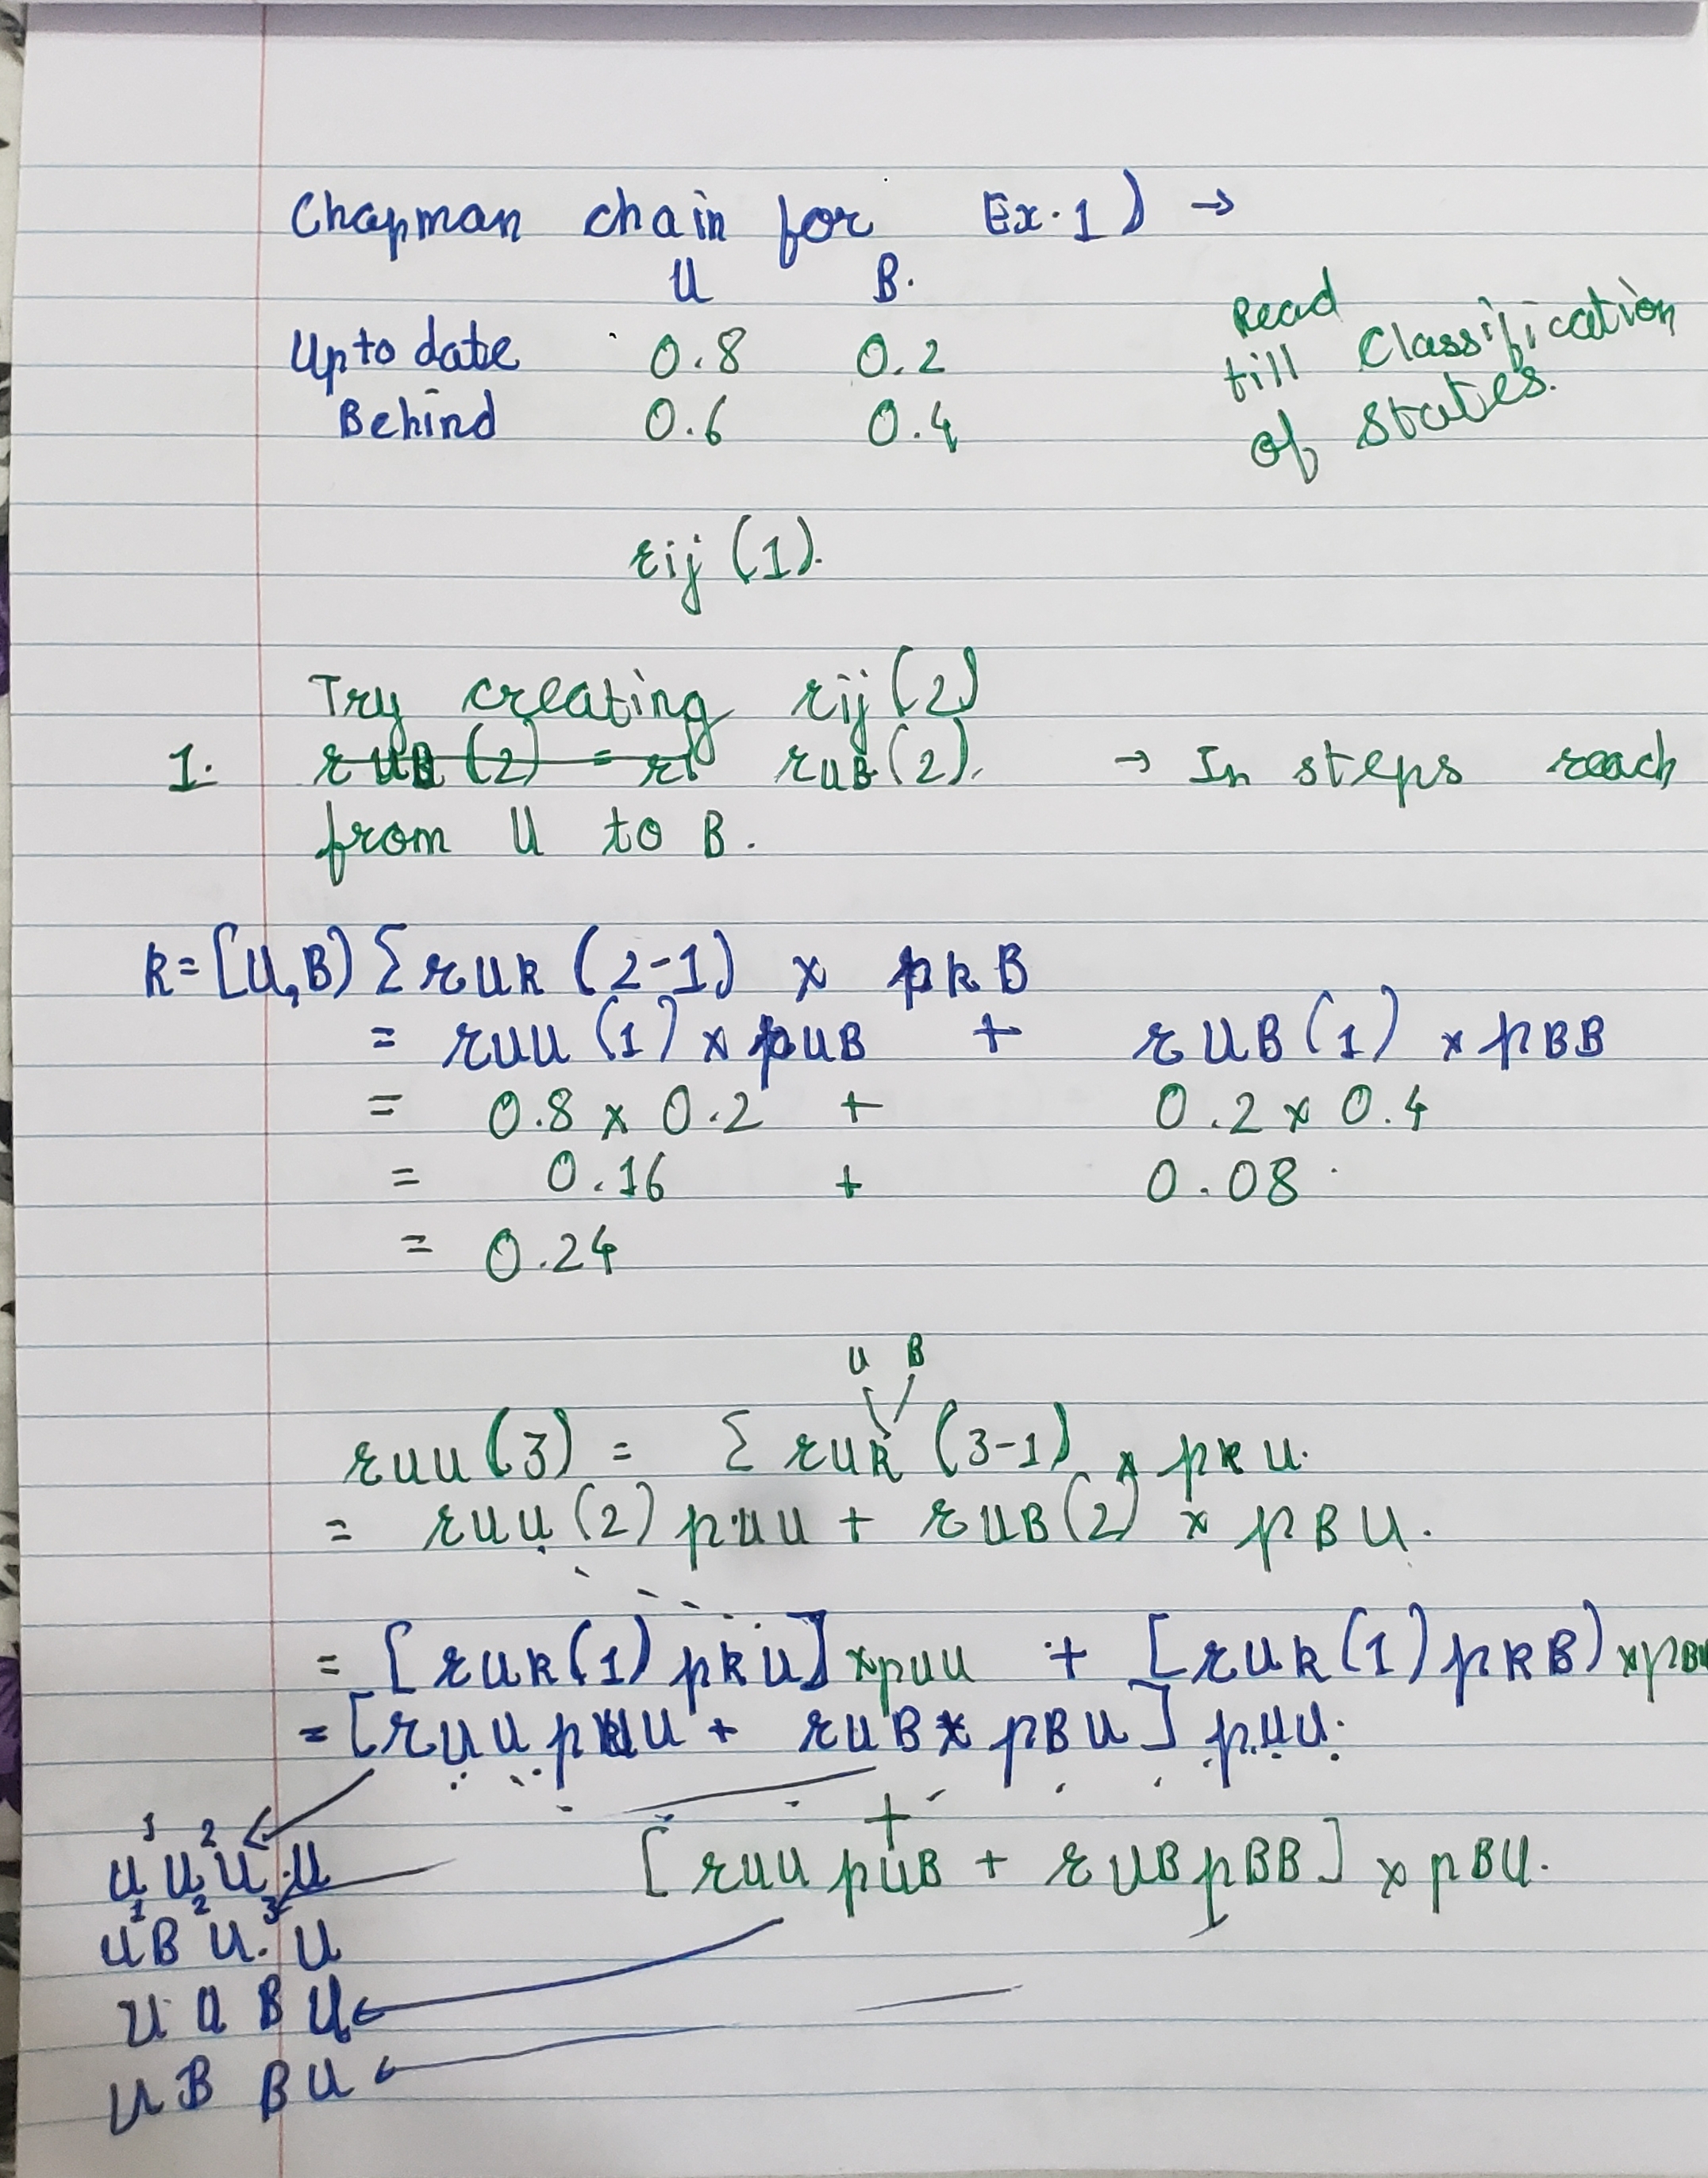 Chapman chain for Ex.1) →
U B.
Upto date 0.8 0.2
Behind 0.6 0.4
Read
till Classification
of States.
rij (1).
Try creating rij (2)
1. rUB (2). → In steps reach
from U to B.
k = [U,B) Σ rUk (2-1) x pkB
= rUU (1) x pUB + rUB (1) x pBB
= 0.8 x 0.2 + 0.2 x 0.4
= 0.16 + 0.08
= 0.24
U B
rUU (3) = Σ rUk (3-1) x pkU.
= rUU (2) pUU + rUB (2) x pBU.
= [rUk (1) pkU] x pUU + [rUk (1) pkB) x pBU
= [rUU pUU + rUB x pBU] pUU.
+
[rUU pUB + rUB pBB] x pBU.
1 2
U U U U
1 2 3
U B U. U
U U B U
U B B U